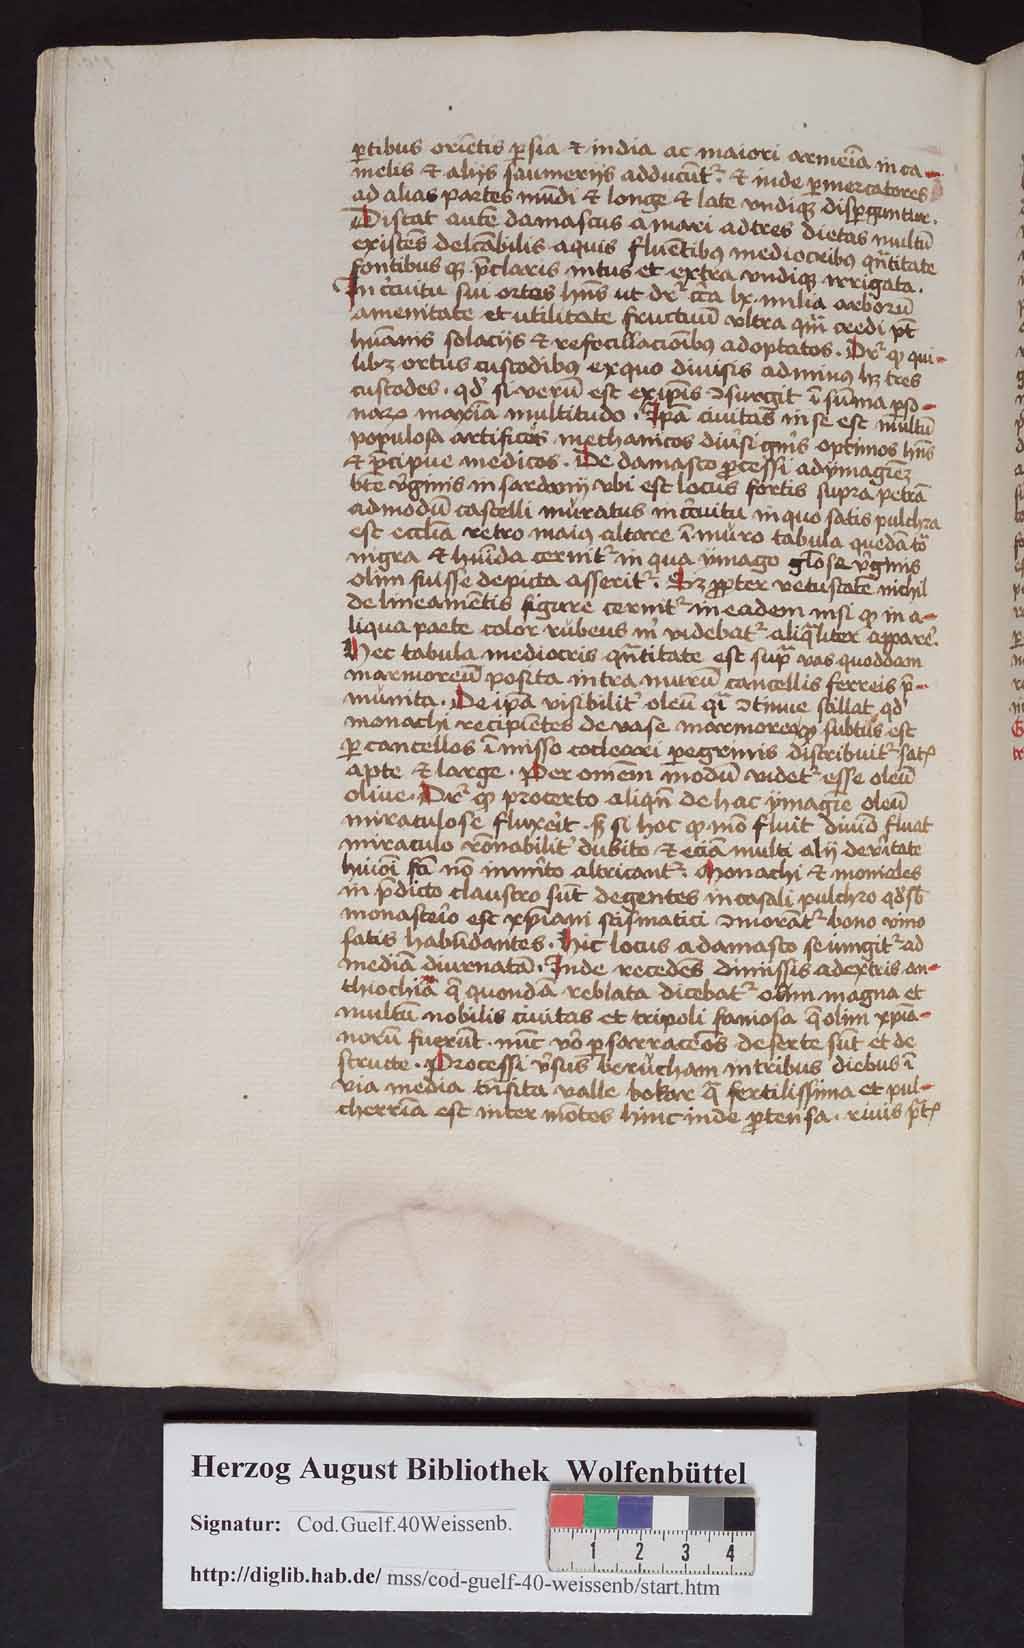 ptibus orie͂tis psia & india ac maiori arme͂ia in ca-
melis & aliis saumeriis adducu͂t͛ & inde p mercatores
ad alias partes mu͂di & longe & late vndiq; disperguntur.
Distat aute͂ damascus a mari ad tres dietas multu͂
existe͂s delc͂abilis aquis flue͂tibꝰ mediocribꝰ qn͂titate
fontibus qꝫ p͂claris intus et extra vndiqꝫ irrigata.
In c͛cuitu sui ortos hn͂s ut dr͛ cc͂a lx milia arboru͂
amenitate et utilitate fructuu͂ vltra qua͂ credi pt͂
hu͂anis solaciis & refocillac͂oibꝰ adoptatos. Dr͛ qꝫ qui-
libꝫ ortus custodibꝰ ex quo diuisis ad minꝰ hꝫ tres
custodes. qd͛ si veru͂ est ex ip͂is ꝯsurgit i͂ su͂ma pso-
naꝝ maxi͂a multitudo. Ip͂a ciuitas in se est multu͂
populosa artifices mechanicos diu͛si gn͛is optimos hn͂s
& p͂cipue medicos. De damasco pcessi ad ymagine͂
bt͂e v͛ginis in sardony vbi est locus fortis supra petra͂
ad modu͂ castelli muratus in c͛cuitu in quo satis pulchra
est eccl͂ia retro maiꝰ altare i͂ muro tabula queda͂ to͂
nigra & hu͂ida cernit͛ in qua ymago glose v͛ginis
olim fuisse depicta asserit͛. Sꝫ ppter vetustate͂ nichil
de lineame͂tis figure cernit͛ in eadem nisi qꝫ in a-
liqua parte color rubeus m͛ videbat͛ aliq͂liter appare͛.
Hec tabula mediocris qn͂titate est sup͂ vas quoddam
marmoreu͂ posita intra muru͂ cancellis ferreis p͂-
munita. De ip͂a visibilit͛ oleu͂ q͂i ꝯtinue stillat qd͛
monachi recipie͂tes de vase marmoreo subtus est
p cancellos i͂misso cocleari pegrinis distribuit͛ sat͛
apte & large. Per om͂em modu͂ videt͛ esse oleu͂
oliue. Dr͛ qꝫ pro certo aliqn͂ de hac ymagi͂e oleu͂
miraculose fluxe͛it. sꝫ si hoc qꝫ mo͂ fluit diui͂o fluat
miraculo ro͂nabilit͛ dubito & ecia͂ multi alij de v͛itate
huiꝰm͂oi fc͂i no͂ inm͛ito altricant͛. Monachi & moniales
in p͂dicto claustro su͂t degentes in casali pulchro qd͛ sb͂
monaste͛io est xp͂iani scismatici ꝯmora͂t͛ bono vino
satis habu͂dantes. Hic locus a damasco seiungit͛ ad
media͂ diurnata͂. Inde recede͂s dimissis a dextris an-
thiochia͂ q͂ quonda͂ reblata dicebat͛ olim magna et
multu͂ nobilis ciuitas et tripoli famosa q͂ olim xp͂ia-
noru͂ fueru͂t. nu͂c v͛o p sarraceno͂s deserte su͂t et de
structe. Processi v͛sus beruicham in tribus diebus i͂
via media tn͂sita valle bokar q͂ fertilissima et pul-
cherri͂a est inter mo͂tes hinc inde ptensa. riuis p͂t͛
Herzog August Bibliothek Wolfenbüttel
Signatur: Cod.Guelf.40Weissenb.
1 2 3 4
http://diglib.hab.de/ mss/cod-guelf-40-weissenb/start.htm